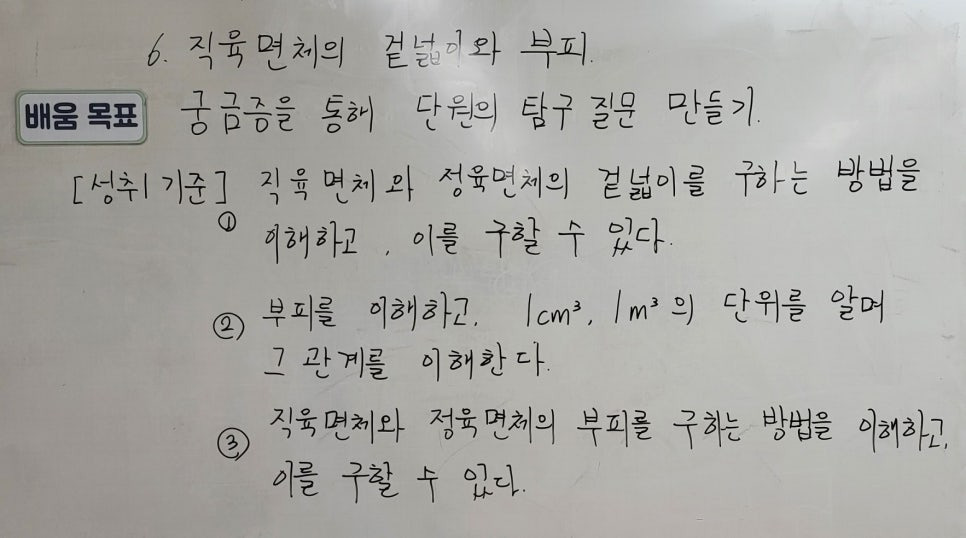 6. 직육면체의 겉넓이와 부피.
배움 목표 궁금증을 통해 단원의 탐구 질문 만들기.
[성취기준] 직육면체와 정육면체의 겉넓이를 구하는 방법을
① 이해하고, 이를 구할 수 있다.
② 부피를 이해하고, 1cm³, 1m³의 단위를 알며
그 관계를 이해한다.
③ 직육면체와 정육면체의 부피를 구하는 방법을 이해하고,
이를 구할 수 있다.